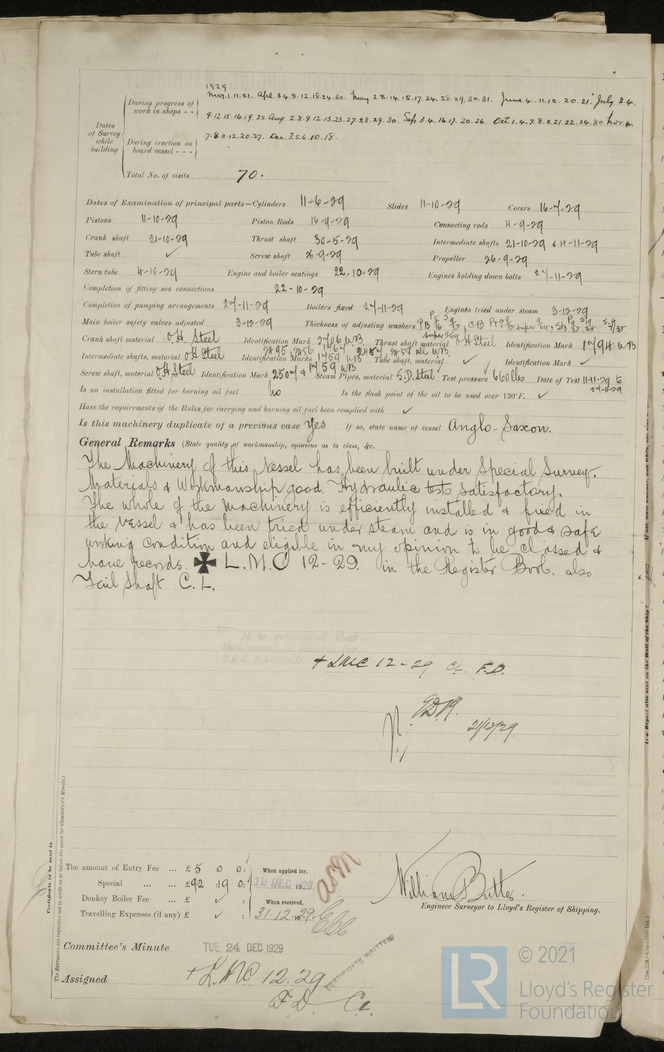 1929
During progress of work in shops - -
Mar. 1. 11. 21. Apl. 3. 4. 9. 12. 18. 24. 30. May 2. 8. 14. 15. 17. 24. 28. 29. 30. 31. June 4. 11. 12. 20. 21. July 2. 4.
9. 12. 15. 16. 19. 25. Aug. 2. 8. 9. 12. 13. 23. 27. 28. 29. 30. Sep. 3. 4. 16. 17. 20. 26. Oct 1. 4. 7. 8. 21. 22. 24. 30 Nov. 4.
Dates of Survey while building
During erection on board vessel - - -
7. 8. 12. 20. 27. Dec. 3. 5. 6. 10. 18.
Total No. of visits 70.
Dates of Examination of principal parts—Cylinders 11-6-29 Slides 11-10-29 Covers 16-7-29
Pistons 11-10-29 Piston Rods 16-9-29 Connecting rods 4-9-29
Crank shaft 21-10-29 Thrust shaft 30-5-29 Intermediate shafts 21-10-29 & 4-11-29
Tube shaft ✓ Screw shaft 26-9-29 Propeller 26-9-29
Stern tube 4-10-29 Engine and boiler seatings 22.10-29 Engines holding down bolts 27-11-29
Completion of fitting sea connections 22-10-29
Completion of pumping arrangements 27-11-29 Boilers fixed 27-11-29 Engines tried under steam 3-12-29
Main boiler safety valves adjusted 3-12-29 Thickness of adjusting washers
Crank shaft material O.H. Steel Identification Mark 2706 WB. Thrust shaft material O.H Steel Identification Mark 1794 WB
Intermediate shafts, material O.H Steel Identification Marks Tube shaft, material ✓ Identification Mark ✓
Screw shaft, material O.H Steel Identification Mark 2507 & 1759 WB Steam Pipes, material S.D. Steel Test pressure 660 lbs Date of Test 11-11-29 to
Is an installation fitted for burning oil fuel no Is the flash point of the oil to be used over 150°F. ✓
Have the requirements of the Rules for carrying and burning oil fuel been complied with ✓
Is this machinery duplicate of a previous case Yes If so, state name of vessel Anglo-Saxon.
General Remarks (State quality of workmanship, opinions as to class, &c.
The Machinery of this Vessel has been built under Special Survey.
Materials & Workmanship good. Hydraulic tests satisfactory.
The whole of the Machinery is efficiently installed & fixed in
the Vessel & has been tried under steam and is in good & safe
working condition and eligible in my opinion to be classed &
have records. ✠ L.M.C 12-29. in the Register Book. also
Tail Shaft C.L.
It is submitted that
this vessel is eligible for
THE RECORD
+ LMC 12-29 CL. F.D.
21/12/29
The amount of Entry Fee ... £ 5 0 0: When applied for,
Special ... ... £ 92 19 0: 18 DEC 1929
Donkey Boiler Fee ... £ ✓ : When received,
Travelling Expenses (if any) £ ✓ : 31.12.29
William Butts.
Engineer Surveyor to Lloyd's Register of Shipping.
Committee's Minute TUE. 24 DEC 1929
Assigned + LMC 12.29
F.D. CL.
CERTIFICATE WRITTEN
Certificate to be sent to
LR
© 2021
Lloyd's Register
Foundation